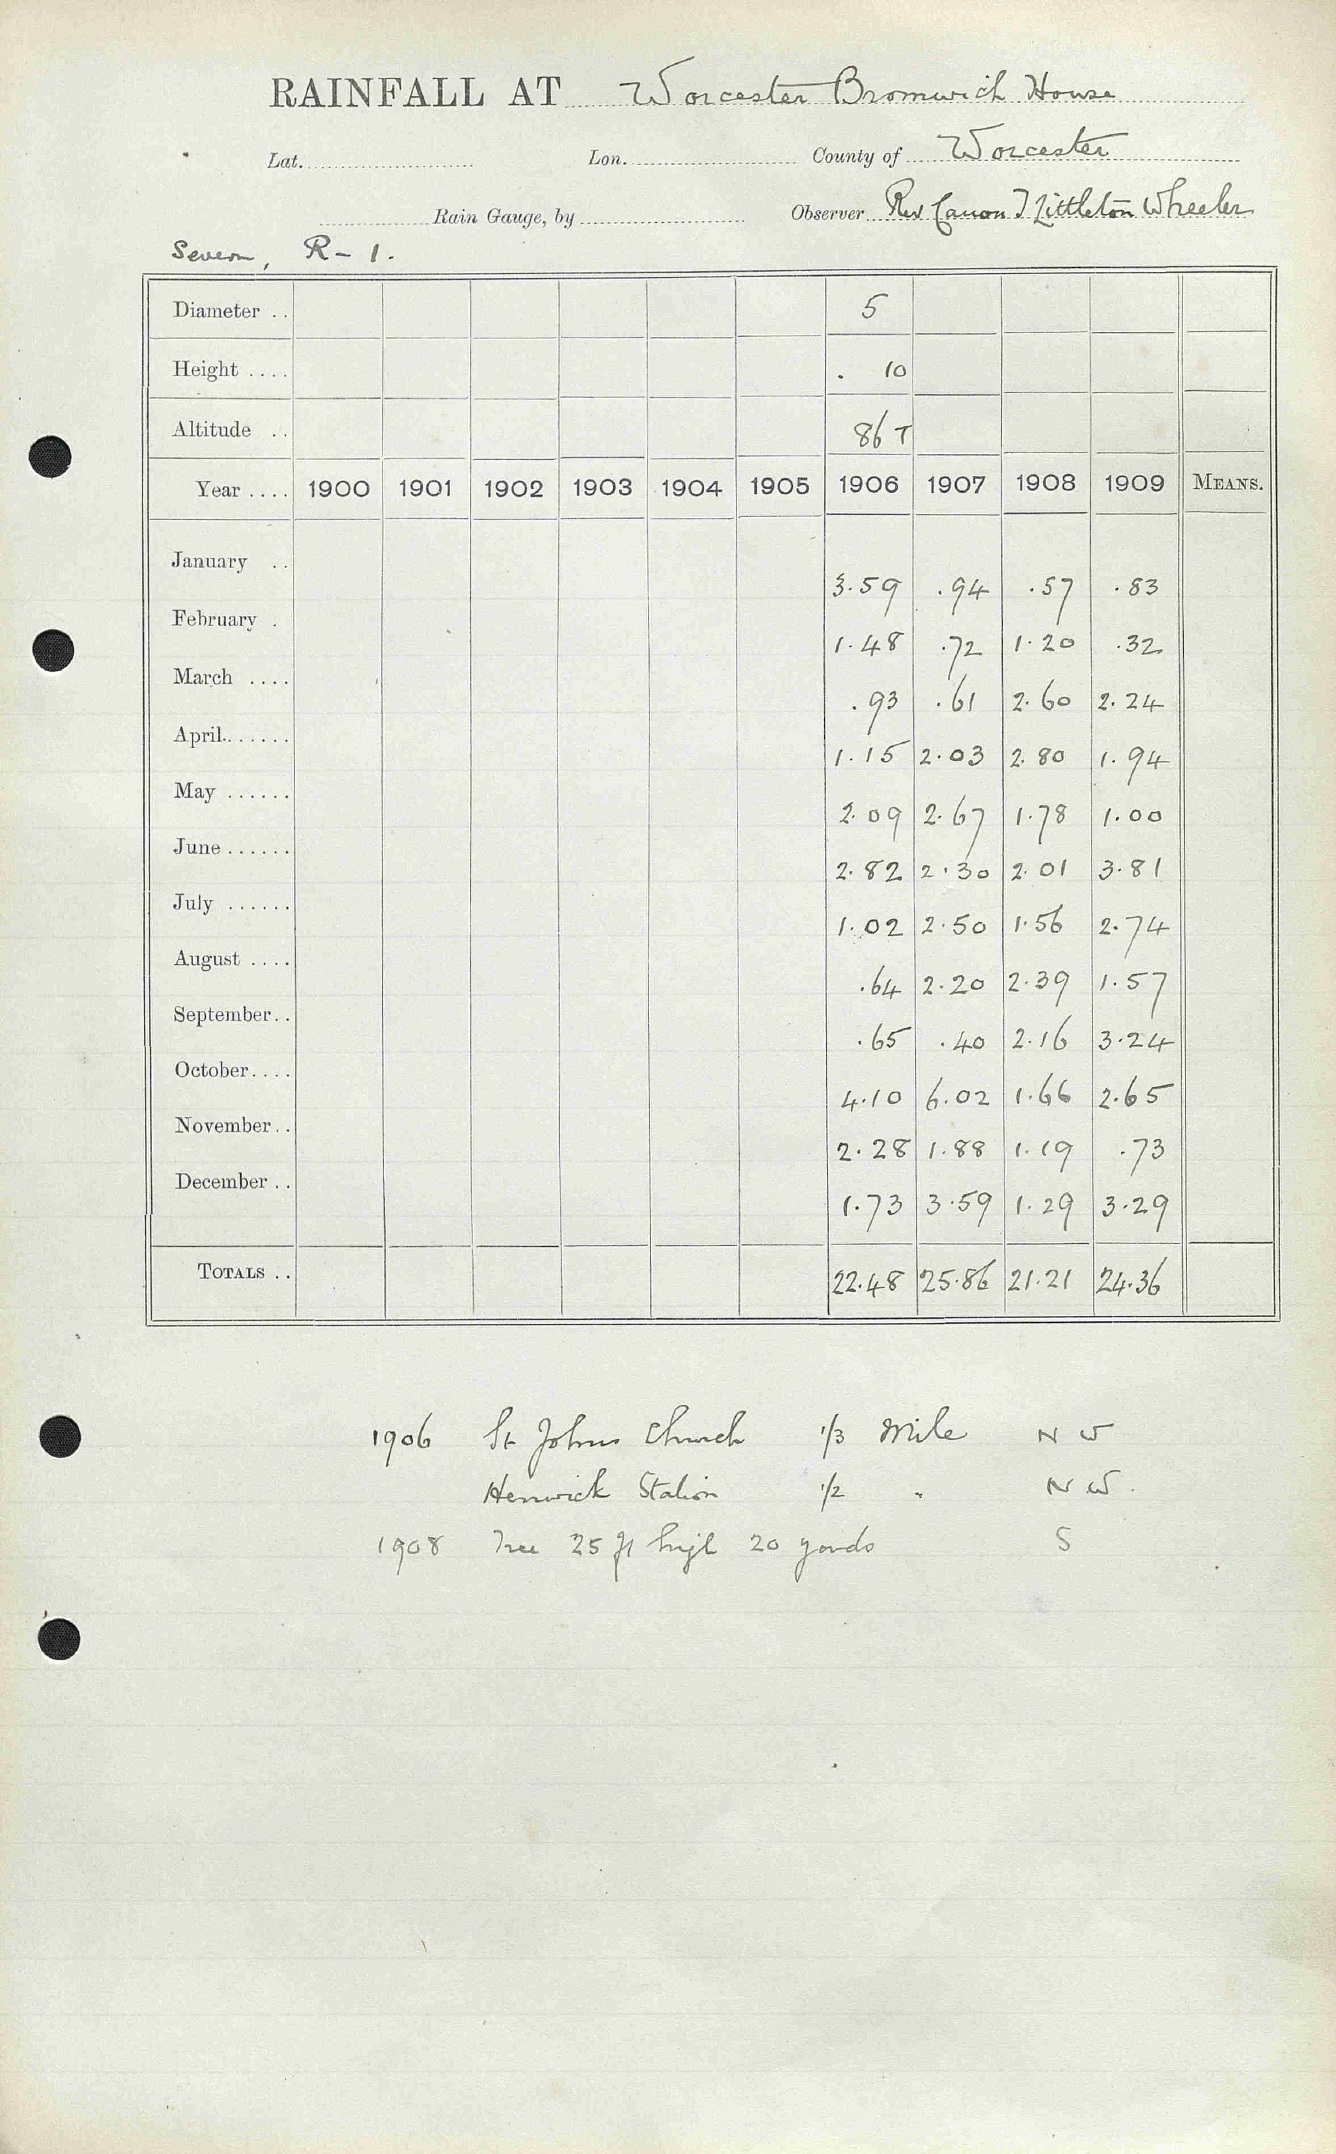 RAINFALL AT Worcester Bromwich House
Lat. Lon. County of Worcester
Rain Gauge, by Observer Rev Canon T Littleton Wheeler
Severn, R - 1.
Diameter .. 5
Height .... . 10
Altitude .. 86 T
Year .... 1900 1901 1902 1903 1904 1905 1906 1907 1908 1909 MEANS.
January .. 3.59 .94 .57 .83
February . 1.48 .72 1.20 .32
March .... .93 .61 2.60 2.24
April...... 1.15 2.03 2.80 1.94
May ...... 2.09 2.67 1.78 1.00
June ...... 2.82 2.30 2.01 3.81
July ...... 1.02 2.50 1.56 2.74
August .... .64 2.20 2.39 1.57
September.. .65 .40 2.16 3.24
October.... 4.10 6.02 1.66 2.65
November.. 2.28 1.88 1.19 .73
December .. 1.73 3.59 1.29 3.29
TOTALS .. 22.48 25.86 21.21 24.36
1906 St Johns Church 1/3 Mile N W
Henwick Station 1/2 " N W.
1908 Tree 25 ft high 20 yards S